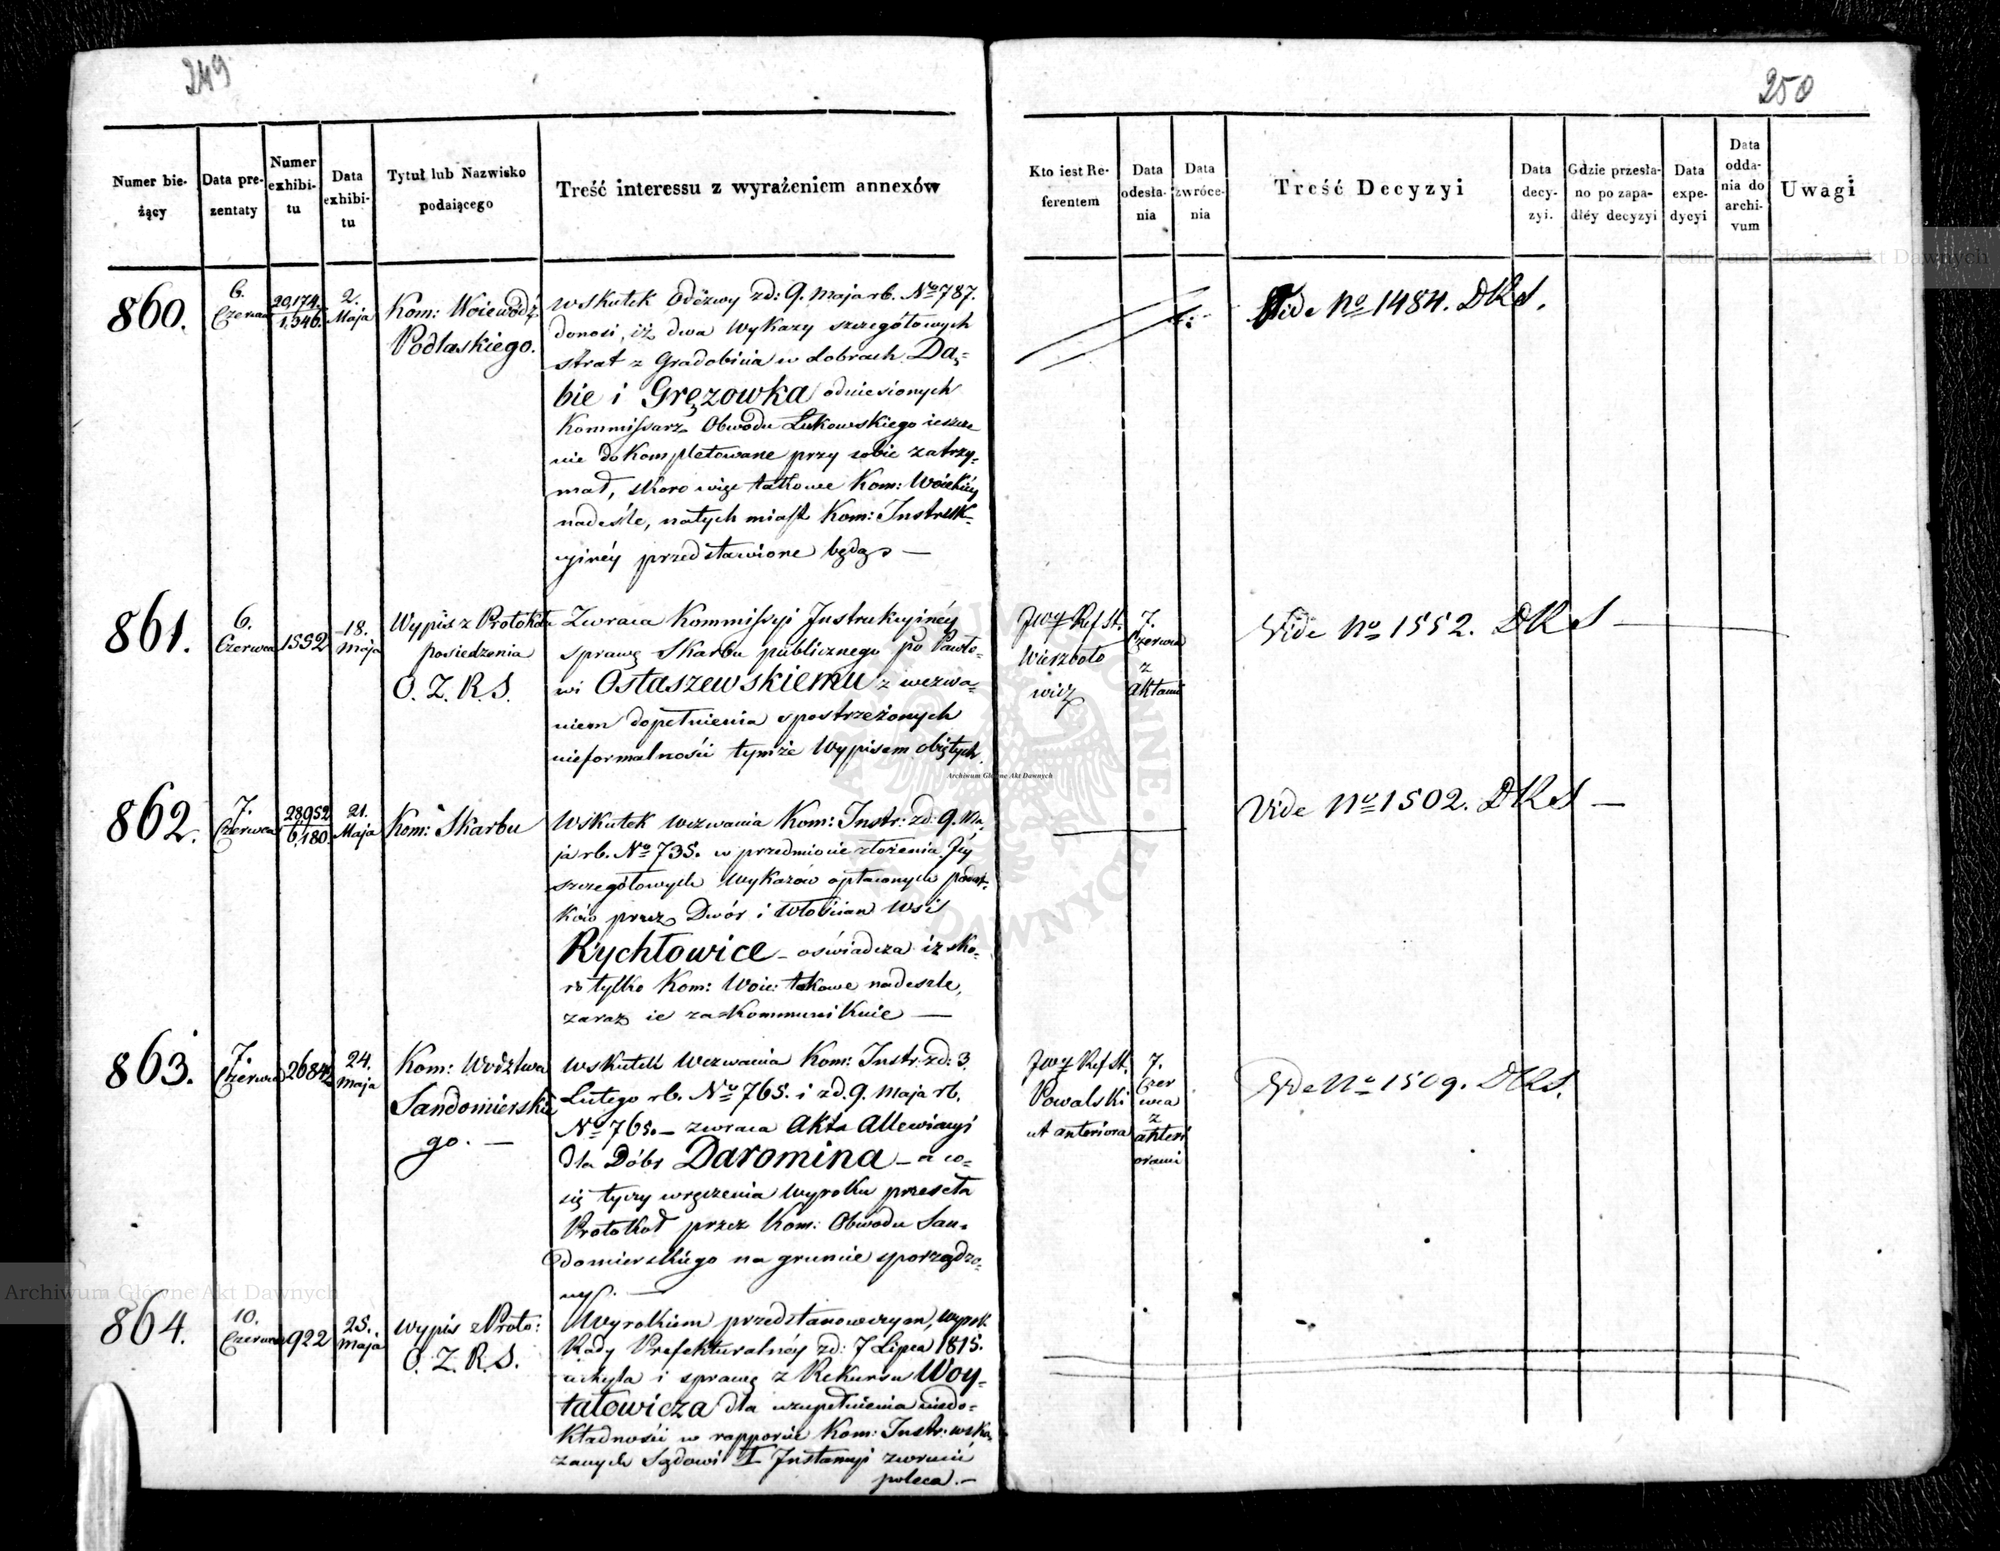 249
Numer bie-
żący
Data pre-
zentaty
Numer
exhibi-
tu
Data
exhibi-
tu
Tytuł lub Nazwisko
podaiącego
Treść interessu z wyrażeniem annexów
860.
6.
Czerwca
20,174.
1,346.
2.
Maja
Kom: Woiewódz:
Podlaskiego.
Wskutek Odezwy zd: 9. Maja rb. No 787.
donosi, iż dwa Wykazy szczegółowych
strat z Gradobicia w dobrach Dą-
bie i Gręzowka odniesionych
Kommissarz Obwodu Łukowskiego ieszcze
nie dokompletowane przy sobie zatrzy-
mał, skoro więc takowe Kom: Woiewódzkiéy
nadeśle, natychmiast Kom: Instruk-
cyinéy przedstawione będą —
861.
6.
Czerwca
1552
18.
Maja
Wypis z Protokołu
posiedzenia
O. Z. R. S.
Zwraca Kommissyi Instrukcyinéy
sprawę Skarbu publicznego po Pawło-
wi Ostaszewskiemu z wezwa-
niem dopełnienia spostrzeżonych
nieformalności tymże Wypisem objętych.
862.
7.
Czerwca
28952
6,180.
21.
Maja
Kom: Skarbu
Wskutek wezwania Kom: Instr: zd: 9. Ma-
ja rb. No 735. w przedmiocie złożenia Jéy
szczegółowych Wykazów opłaconych podat-
ków przez Dwór i Włościan Wsi
Rychłowice – oświadcza iż sko-
ro tylko Kom: Woie: takowe nadeszle,
zaraz ie zakommunikuie —
863.
7.
Czerwca
26842
24.
Maja
Kom: Wodztwa
Sandomierskie
go. —
Wskutek Wezwania Kom: Instr: zd: 3
Lutego rb. No 765. i zd. 9. Maja rb.
No 765. – zwraca Akta Allewiacyi
dla Dóbr Daromina – a co
się tyczy wręczenia Wyroku przeseła
Protokół przez Kom: Obwodu San-
domierskiego na gruncie sporządzo-
ny. —
864.
10.
Czerwca
922
25.
Maja
Wypis z Proto:
O. Z. R. S.
Wyrokiem przedstanowczym, wyrok
Rady Prefekturalnéy zd: 7 Lipca 1815.
uchyla i sprawę z Rekursu Woy-
tatowicza dla uzupełnienia niedo-
kładności w rapporcie Kom: Instr: wska-
zanych Sądowi I Instancyi zwrócić
poleca. —
250
Kto iest Re-
ferentem
Data
odesła-
nia
Data
zwróce-
nia
Treść Decyzyi
Data
decy-
zyi.
Gdzie przesła-
no po zapa-
dłéy decyzyi
Data
expe-
dycyi
Data
odda-
nia do
archi-
vum
Uwagi
Vide No 1484. DKS.
JWy Ref St.
Wierzboło
wicz
7.
Czerwca
z
aktami
Vide No 1552. DKS —
Vide No 1502. DKS —
JWy Ref St.
Powalski
ut anteriora
7.
Czer
wca
z
anteri
orami
Vide No 1509. DKS.
Archiwum Główne Akt Dawnych
Archiwum Główne Akt Dawnych
Archiwum Główne Akt Dawnych